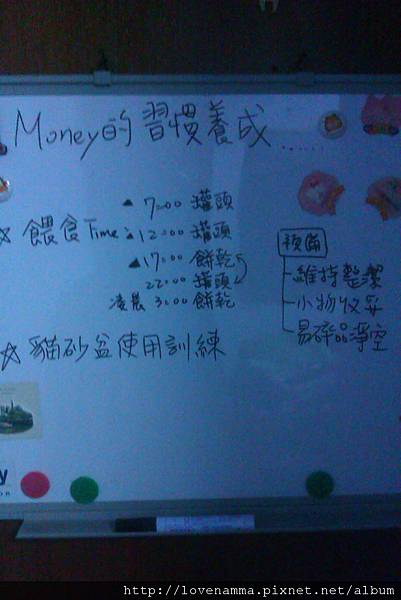 Money的習慣養成......
▲ 7:00 罐頭
☆ 餵食Time: ▲12:00 罐頭
▲17:00 餅乾
22:00 罐頭
凌晨 3:00 餅乾
☆ 貓砂盆使用訓練
預備
維持整潔
小物收妥
易碎品淨空
y
on
http://lovenamma.pixnet.net/album